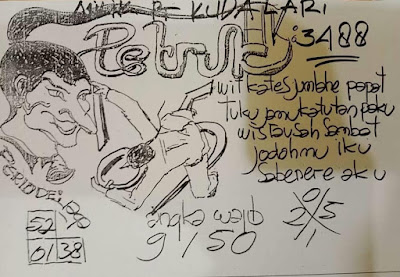 MILIK R- KUDALARI
Petruk: 3488
wit kates jumblhe papat
tuku amu katutan paku
wis Busah Sambat
jodohmu iku
Sbenere aku
PERIODE:
52
0138
angka wajib
9 150
0
2 5
1